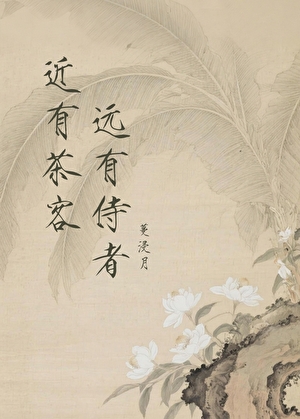 近有茶客
远有侍者
浸月